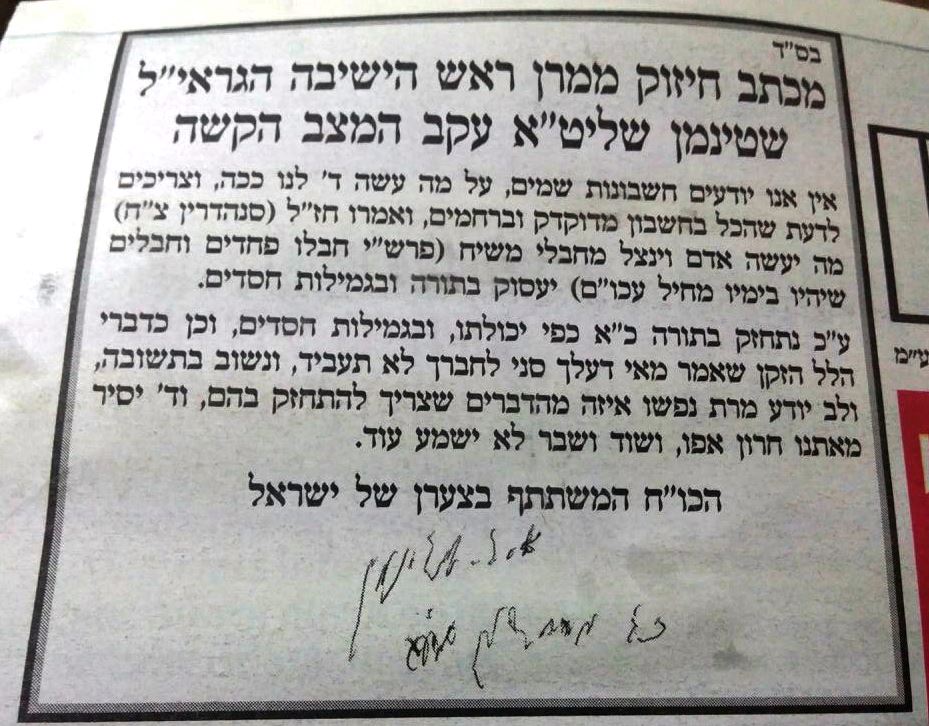 בס"ד
מכתב חיזוק ממרן ראש הישיבה הגראי"ל
שטינמן שליט"א עקב המצב הקשה
אין אנו יודעים חשבונות שמים, על מה עשה ד' לנו ככה, וצריכים
לדעת שהכל בחשבון מדוקדק וברחמים, ואמרו חז"ל (סנהדרין צ"ח)
מה יעשה אדם וינצל מחבלי משיח (פרש"י חבלו פחדים וחבלים
שיהיו בימיו מחיל עכו"ם) יעסוק בתורה ובגמילות חסדים.
ע"כ נתחזק בתורה כ"א כפי יכולתו, ובגמילות חסדים, וכן כדברי
הלל הזקן שאמר מאי דעלך סני לחברך לא תעביד, ונשוב בתשובה,
ולב יודע מרת נפשו איזה מהדברים שצריך להתחזק בהם, וד' יסיר
מאתנו חרון אפו, ושוד ושבר לא ישמע עוד.
הכו"ח המשתתף בצערן של ישראל
א. ל. שטינמן
ע"מ